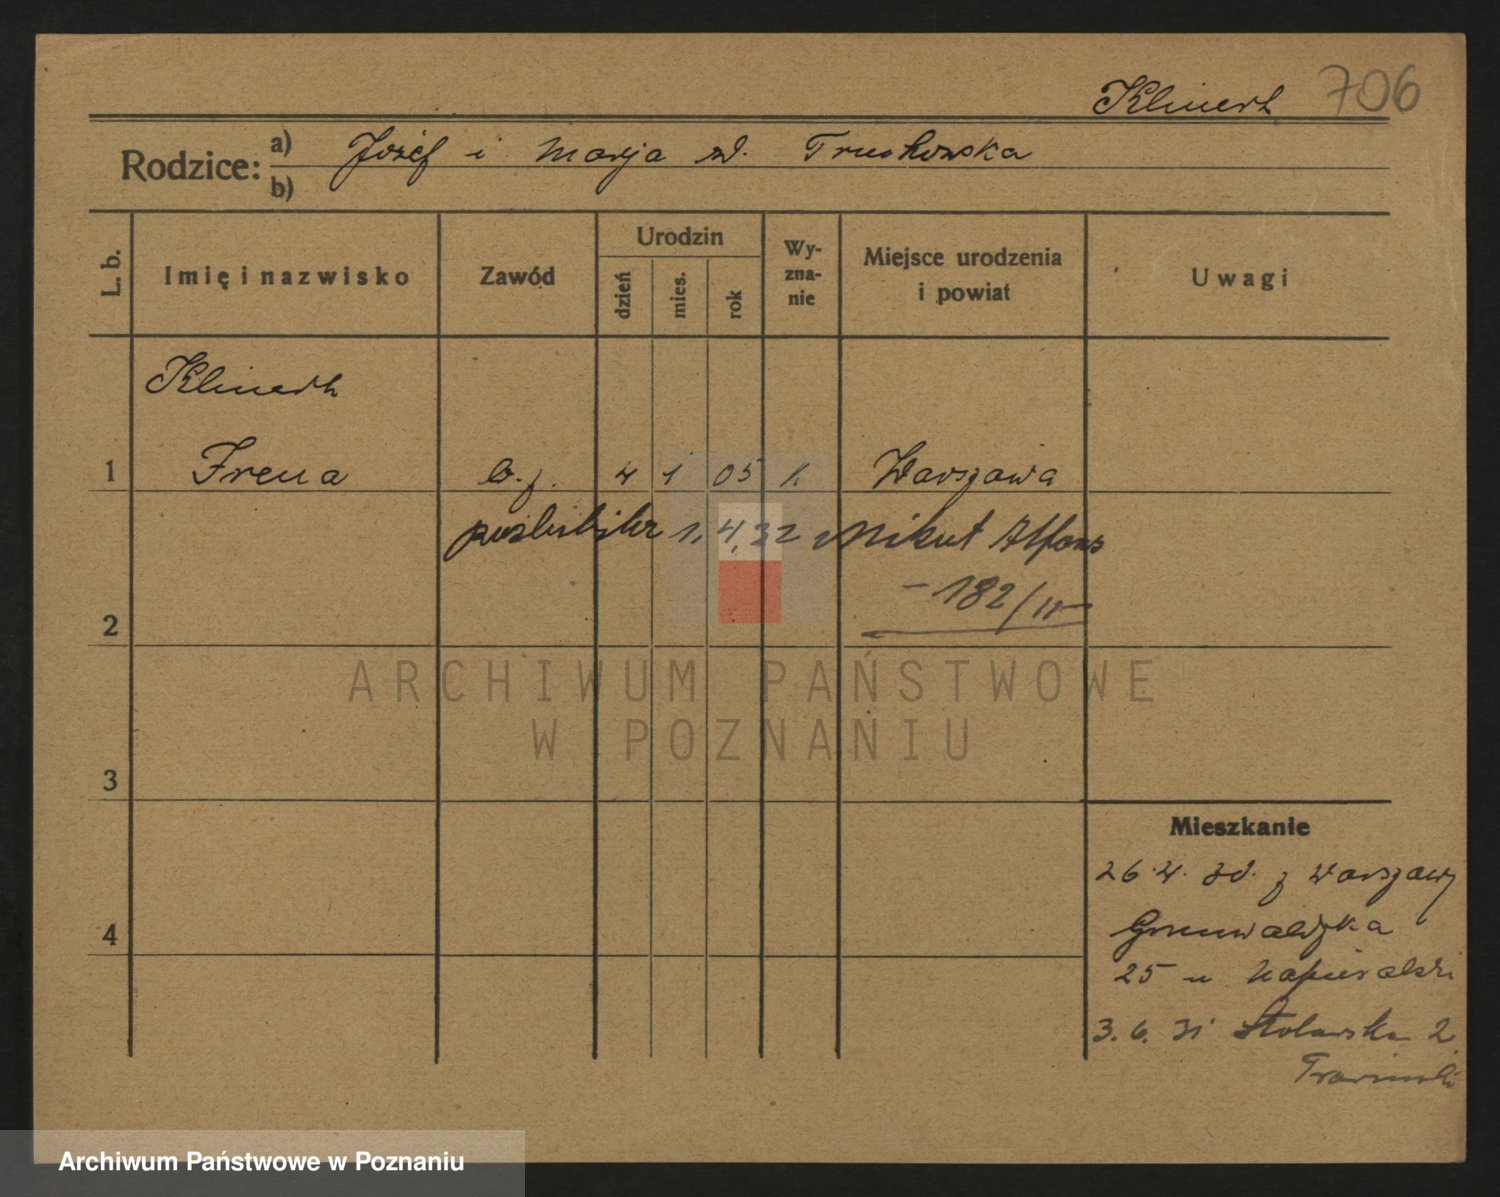 Klinert 706
Rodzice: a) Józef i Marja zd. Truskowska
b)
L. b. Imię i nazwisko Zawód Urodzin dzień mies. rok Wyznanie Miejsce urodzenia i powiat Uwagi
Klinert
1 Irena b. z. 4 1 05 k. Warszawa
poślubiła 1.4.32 Mikut Alfons
- 182/II -
2
ARCHIWUM PAŃSTWOWE
W POZNANIU
3
Mieszkanie
26.4. 30. z Warszawy
4 Grunwaldzka
25 u Napieralski
3.6.31 Stolarska 2
Archiwum Państwowe w Poznaniu